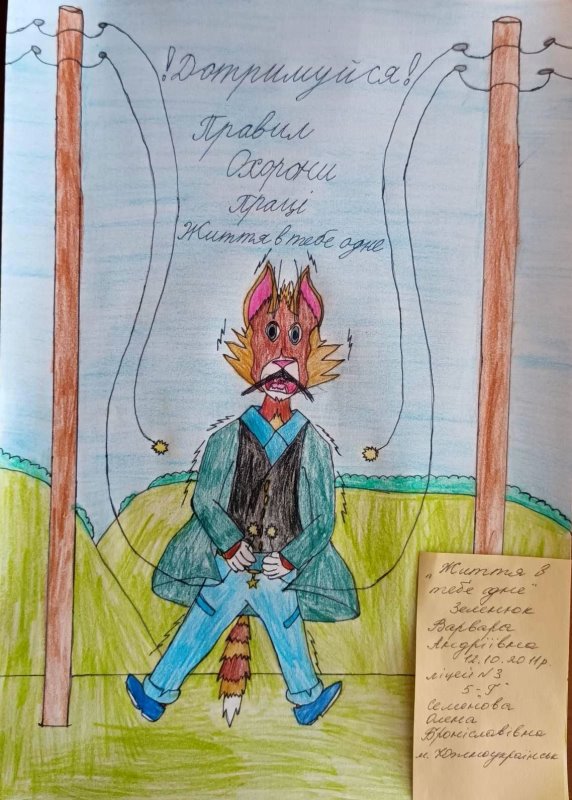 !Дотримуйся!
Правил
Охорони
Праці
Життя в тебе одне
"Життя в
тебе одне"
Зеленюк
Варвара
Андріївна
12.10.2011р.
ліцей №3
5-"Г"
Семенова
Олена
Броніславівна
м. Южноукраїнськ